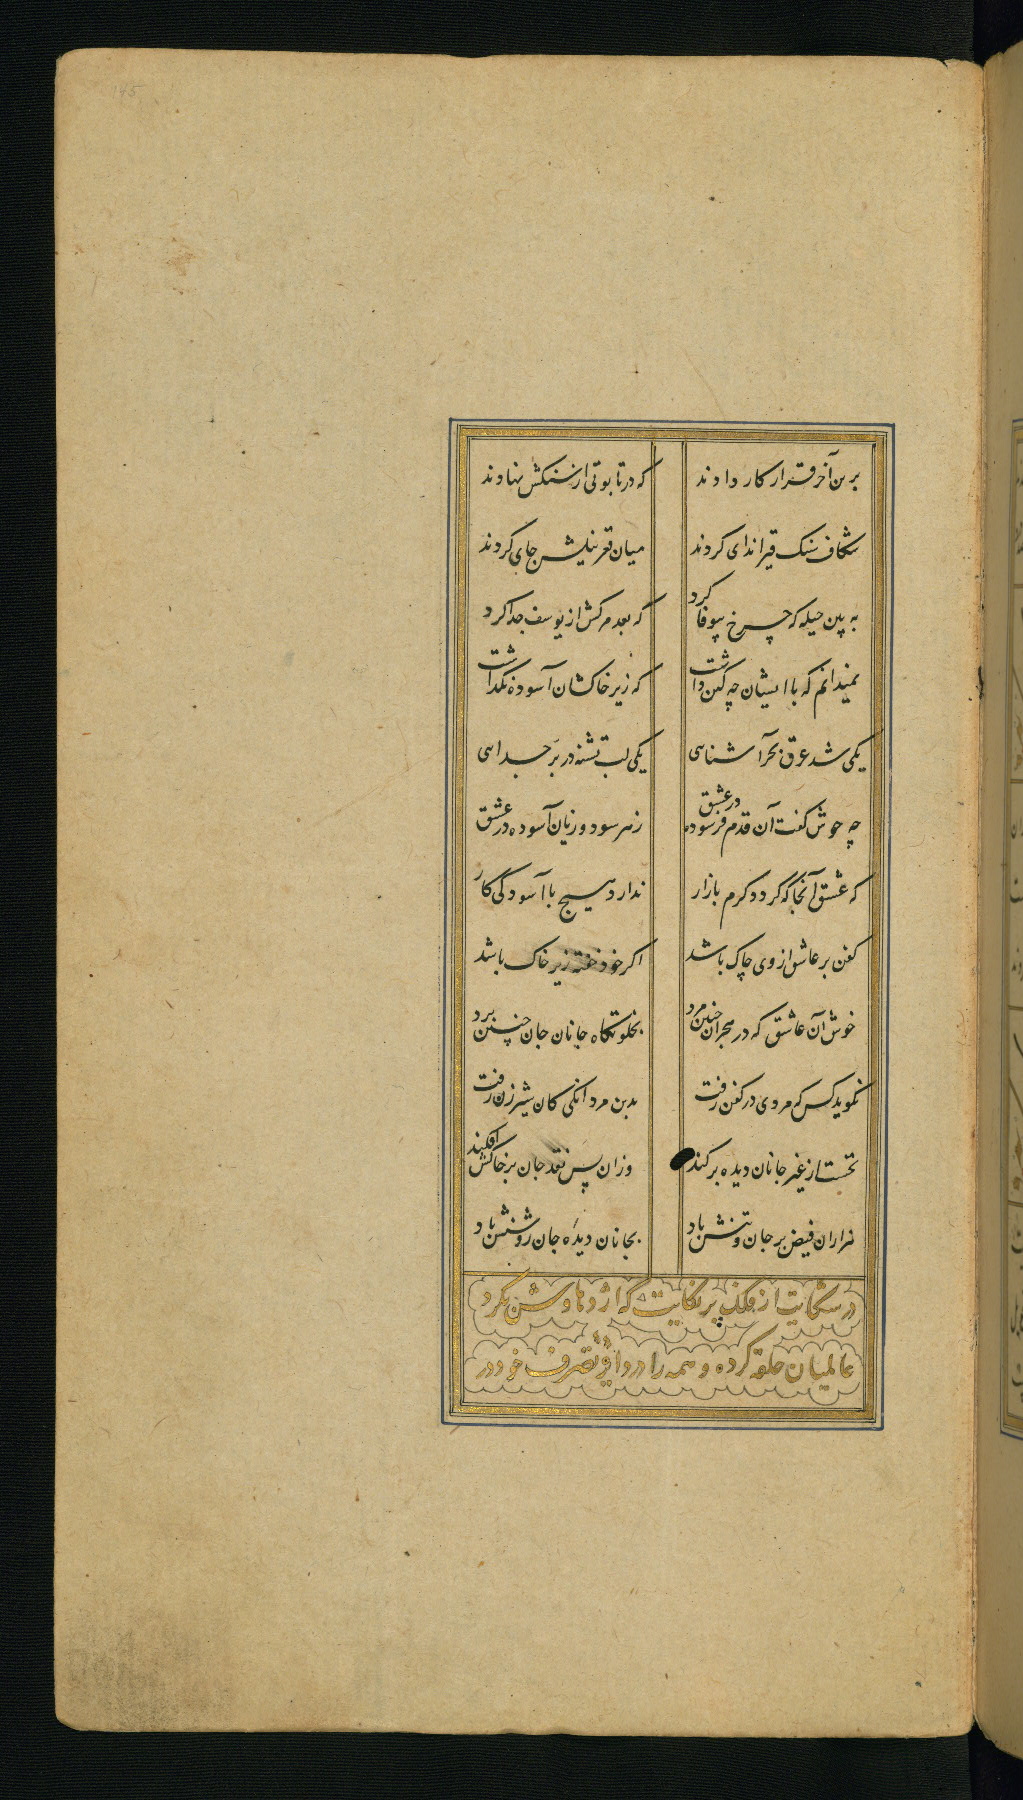 145
برین آخر قرار کار دادند که در تابوتی از سنکش نهادند
شکاف سنک قیر اندای کردند میان قعر نیلش جای کردند
به بین حیله که چرخ بیوفا کرد که بعد مرکش از یوسف جدا کرد
نمیدانم که با ایشان چه کین داشت که زیر خاکشان آسوده نکذاشت
یکی شد غرق بحر آشنایی یکی لب تشنه در بر جدایی
چه خوش کفت آن قدم فرسوده در عشق ز هر سود و زیان آسوده در عشق
که عشق آنجا که کردد کرم بازار ندارد هیچ با آسودکی کار
کفن بر عاشق از وی چاک باشد اکر خود خفته زیر خاک باشد
خوش آن عاشق که در هجران چنین مرد بخلوتکاه جانان جان چنین برد
نکوید کس که مردی در کفن رفت بدین مردانکی کان شیرزن رفت
نخست از غیر جانان دیده برکند وزان پس نقد جان بر خاکش افکند
هزاران فیض بر جان و تنش باد بجانان دیدهٔ جان روشنش باد
در شکایت از فلک پر نکایت که اژدهاوش بکرد
عالمیان حلقه کرده و همه را در دایره تصرف خود در